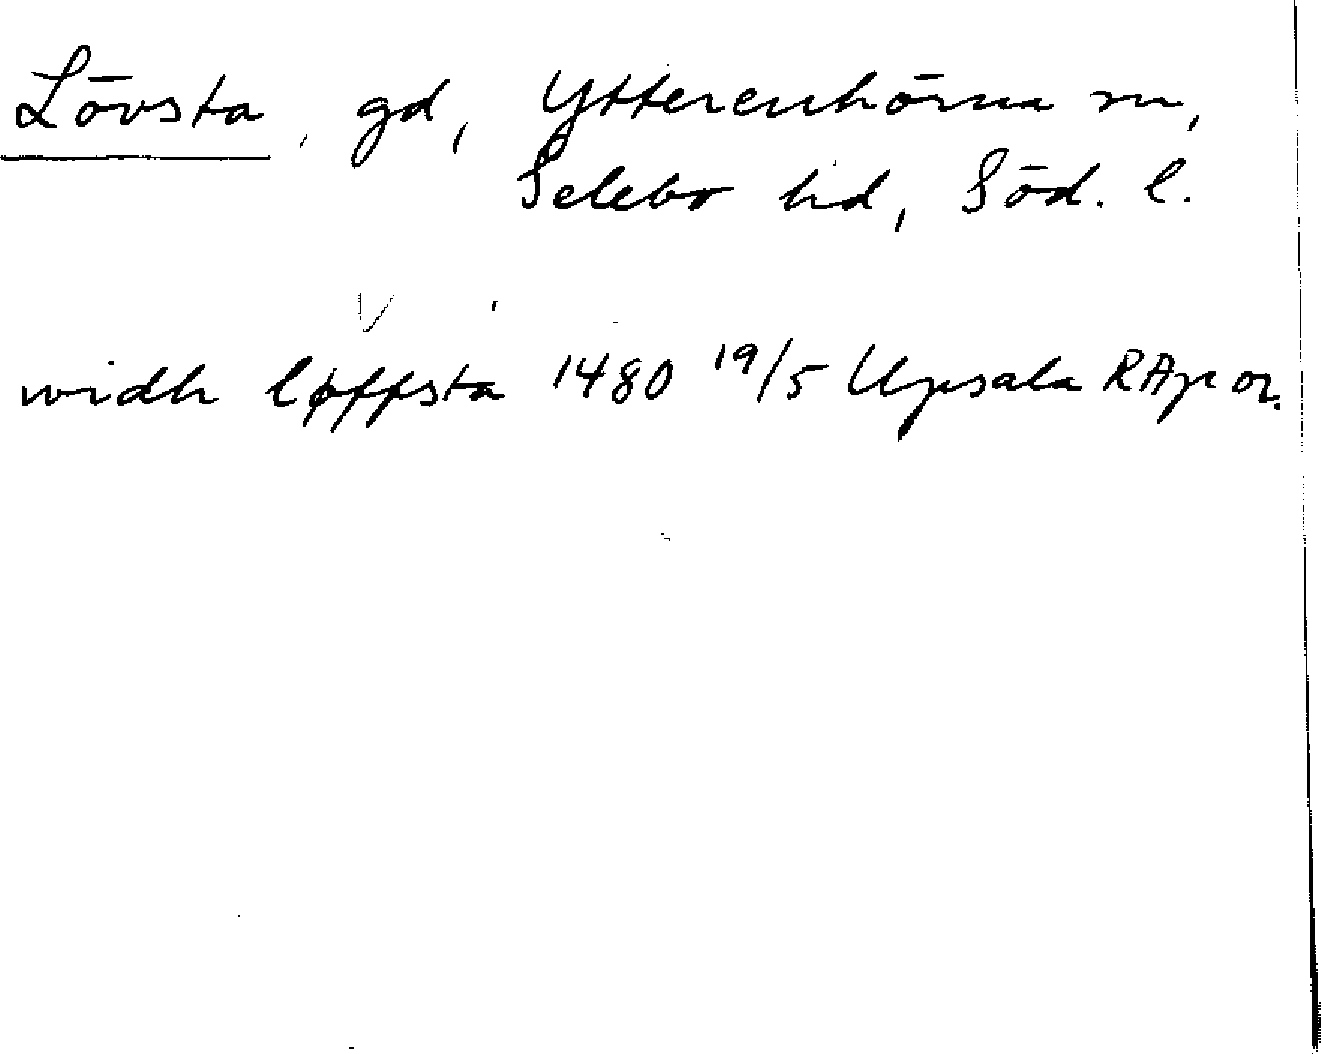 Lövsta, gd, Ytterenhörna sn,
Selebo hd, Söd. l.
widh løffsta 1480 19/5 Upsala RAp or.